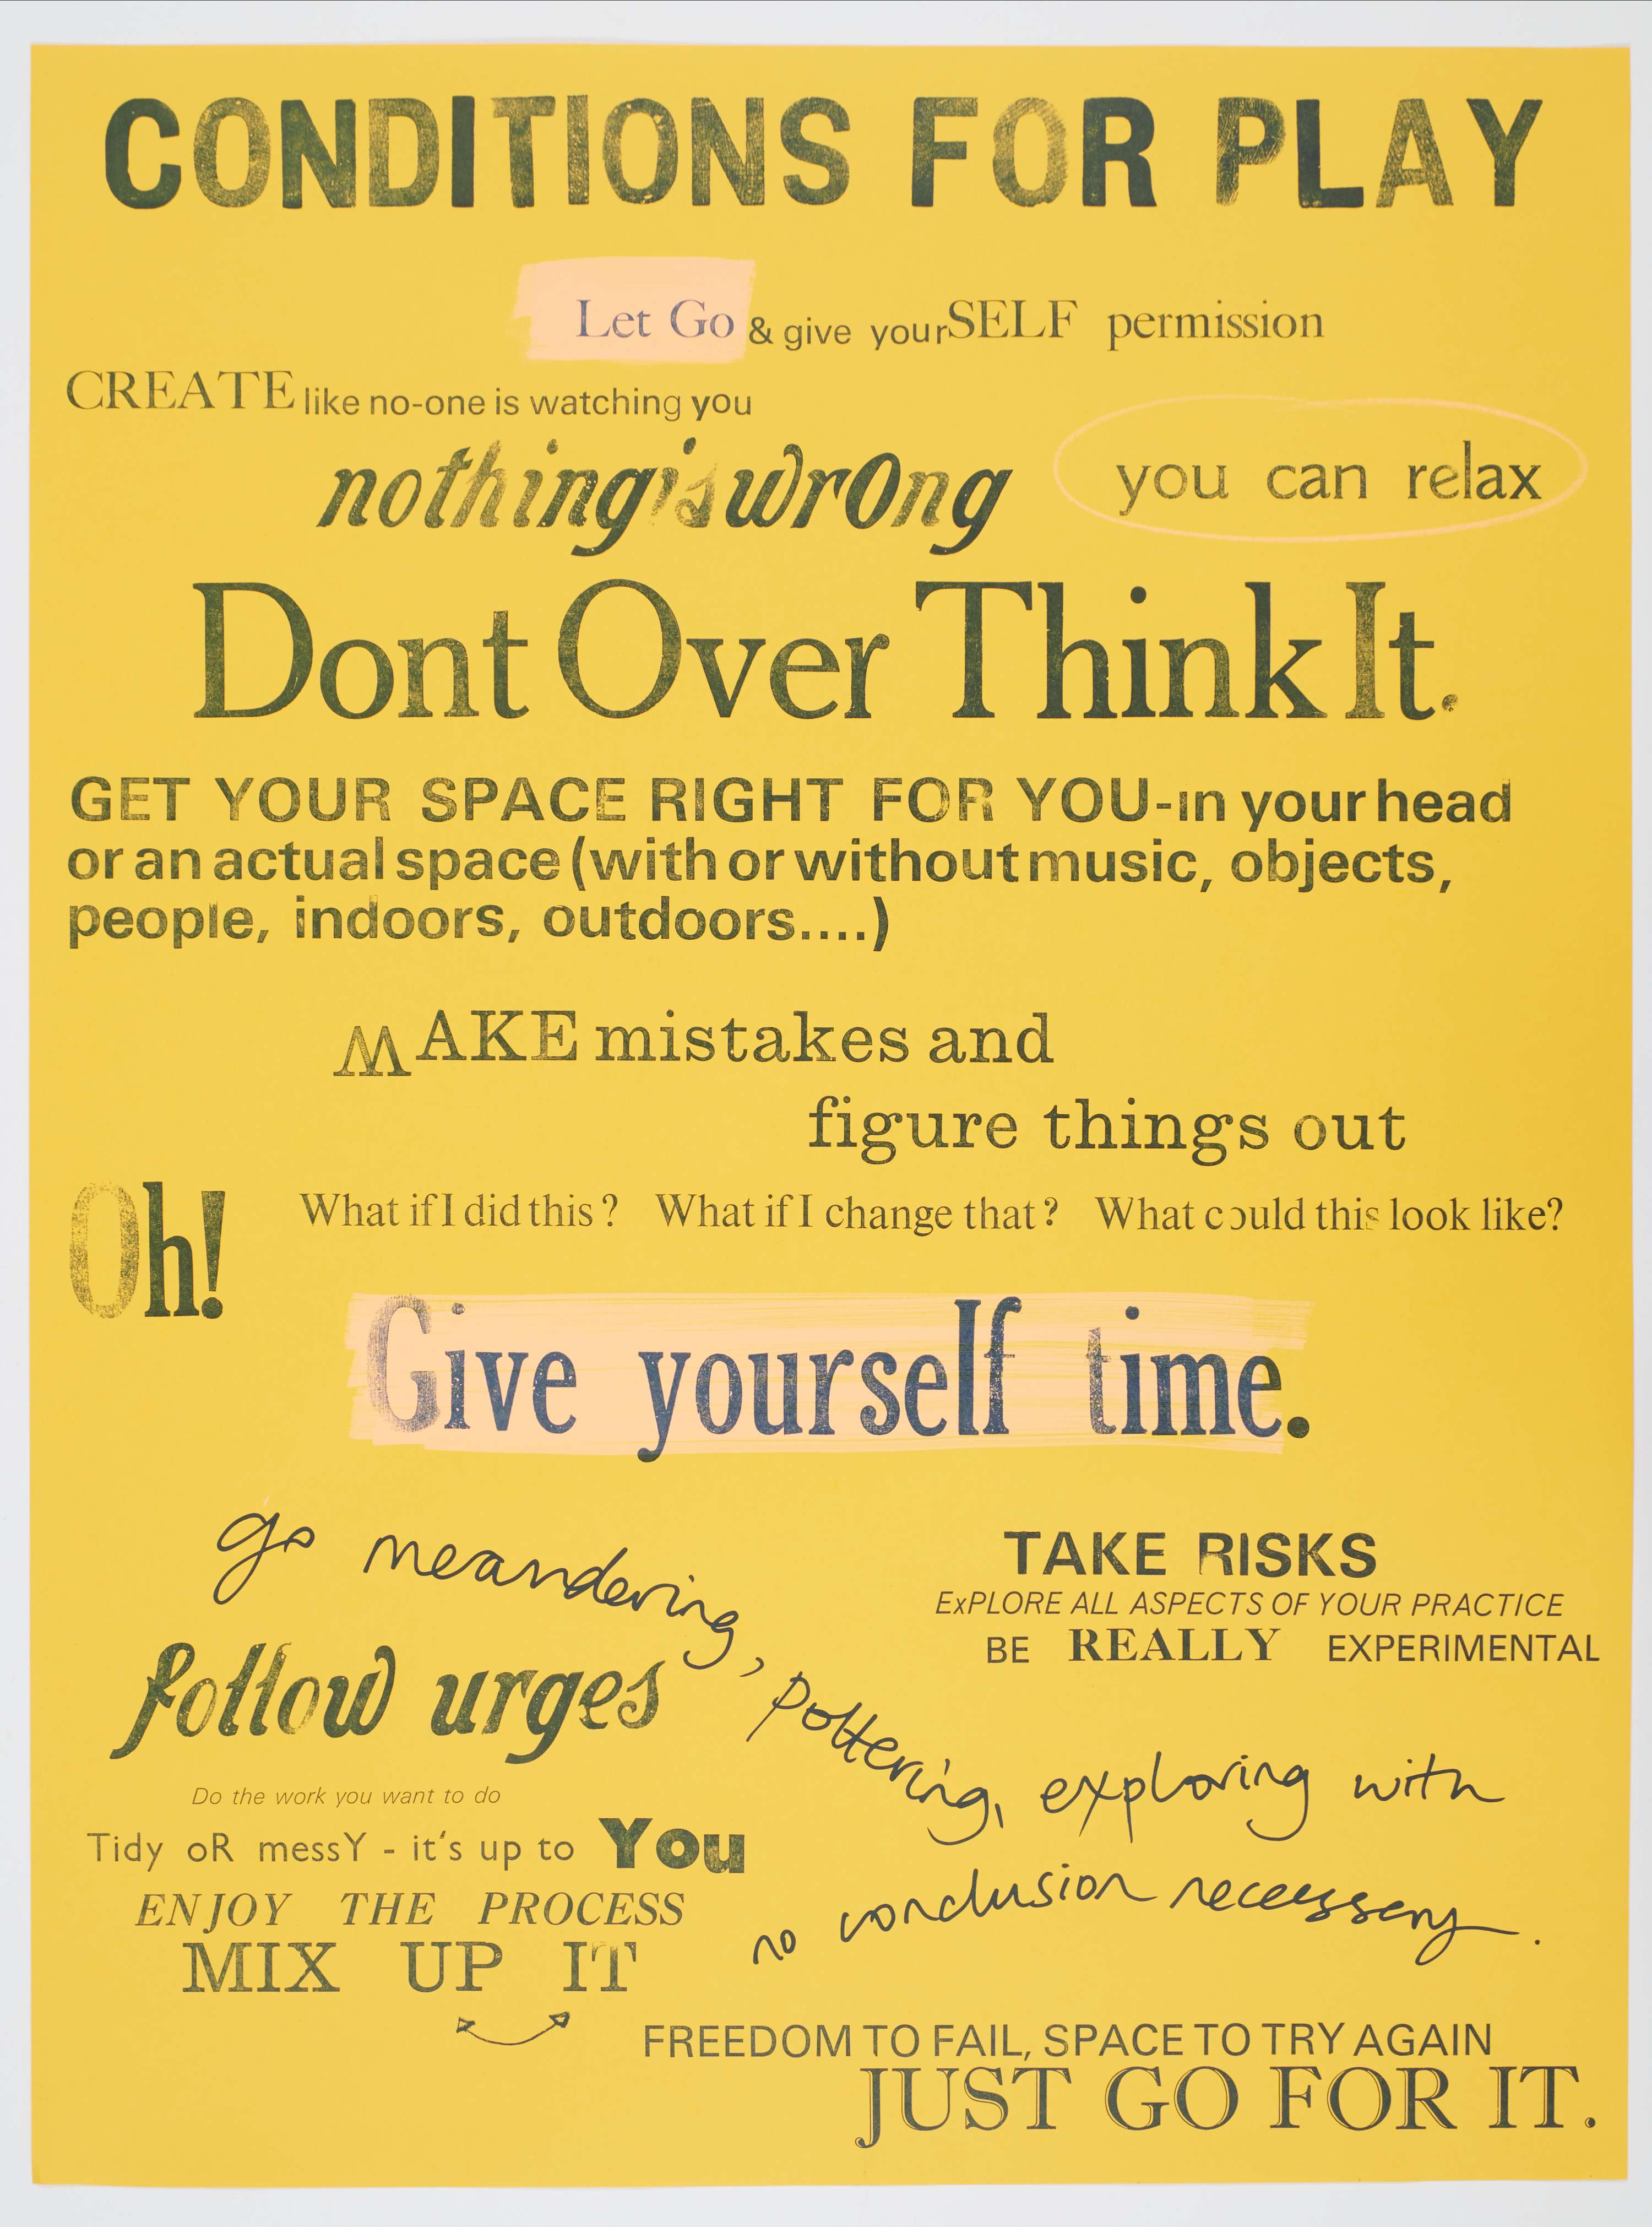 CONDITIONS FOR PLAY
Let Go & give yourSELF permission
CREATE like no-one is watching you
nothing is wrOng
you can relax
Dont Over Think It.
GET YOUR SPACE RIGHT FOR YOU-in your head
or an actual space (with or without music, objects,
people, indoors, outdoors....)
MAKE mistakes and
figure things out
Oh!
What if I did this? What if I change that? What could this look like?
Give yourself time.
go meandering,
pottering, exploring with
no conclusion necessary.
TAKE RISKS
ExPLORE ALL ASPECTS OF YOUR PRACTICE
BE REALLY EXPERIMENTAL
follow urges
Do the work you want to do
Tidy oR messY - it's up to You
ENJOY THE PROCESS
MIX UP IT
FREEDOM TO FAIL, SPACE TO TRY AGAIN
JUST GO FOR IT.